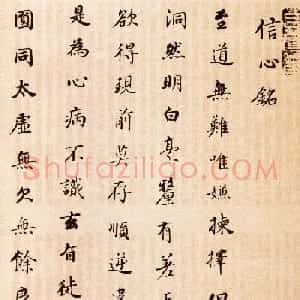 信心銘
至道無難唯嫌揀擇但
洞然明白毫釐有差
欲得現前莫存順逆違
是為心病不識玄旨徒
圓同太虛無欠無餘良
Shufaziliao.com